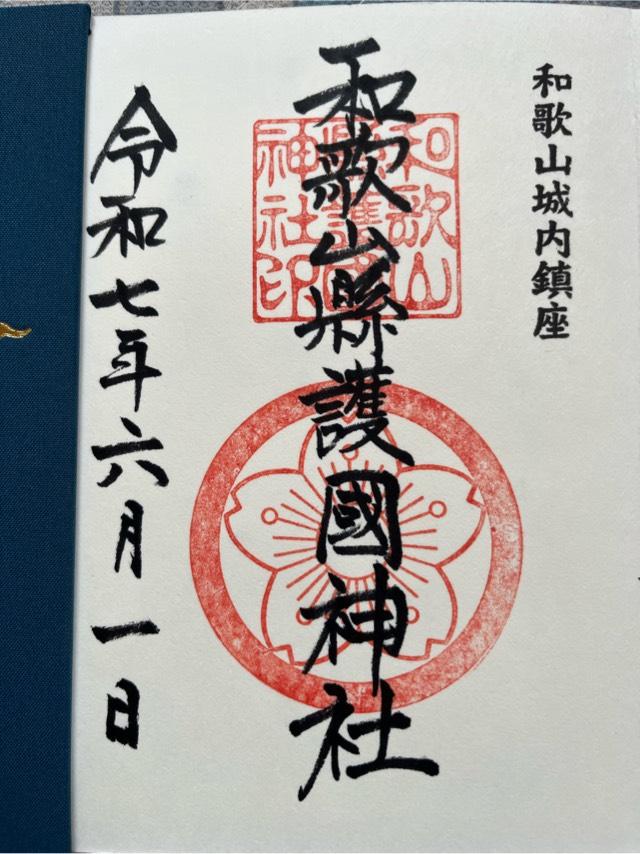 和歌山城内鎮座
和歌山縣護國神社
和歌山
縣護國
神社印
令和七年六月一日